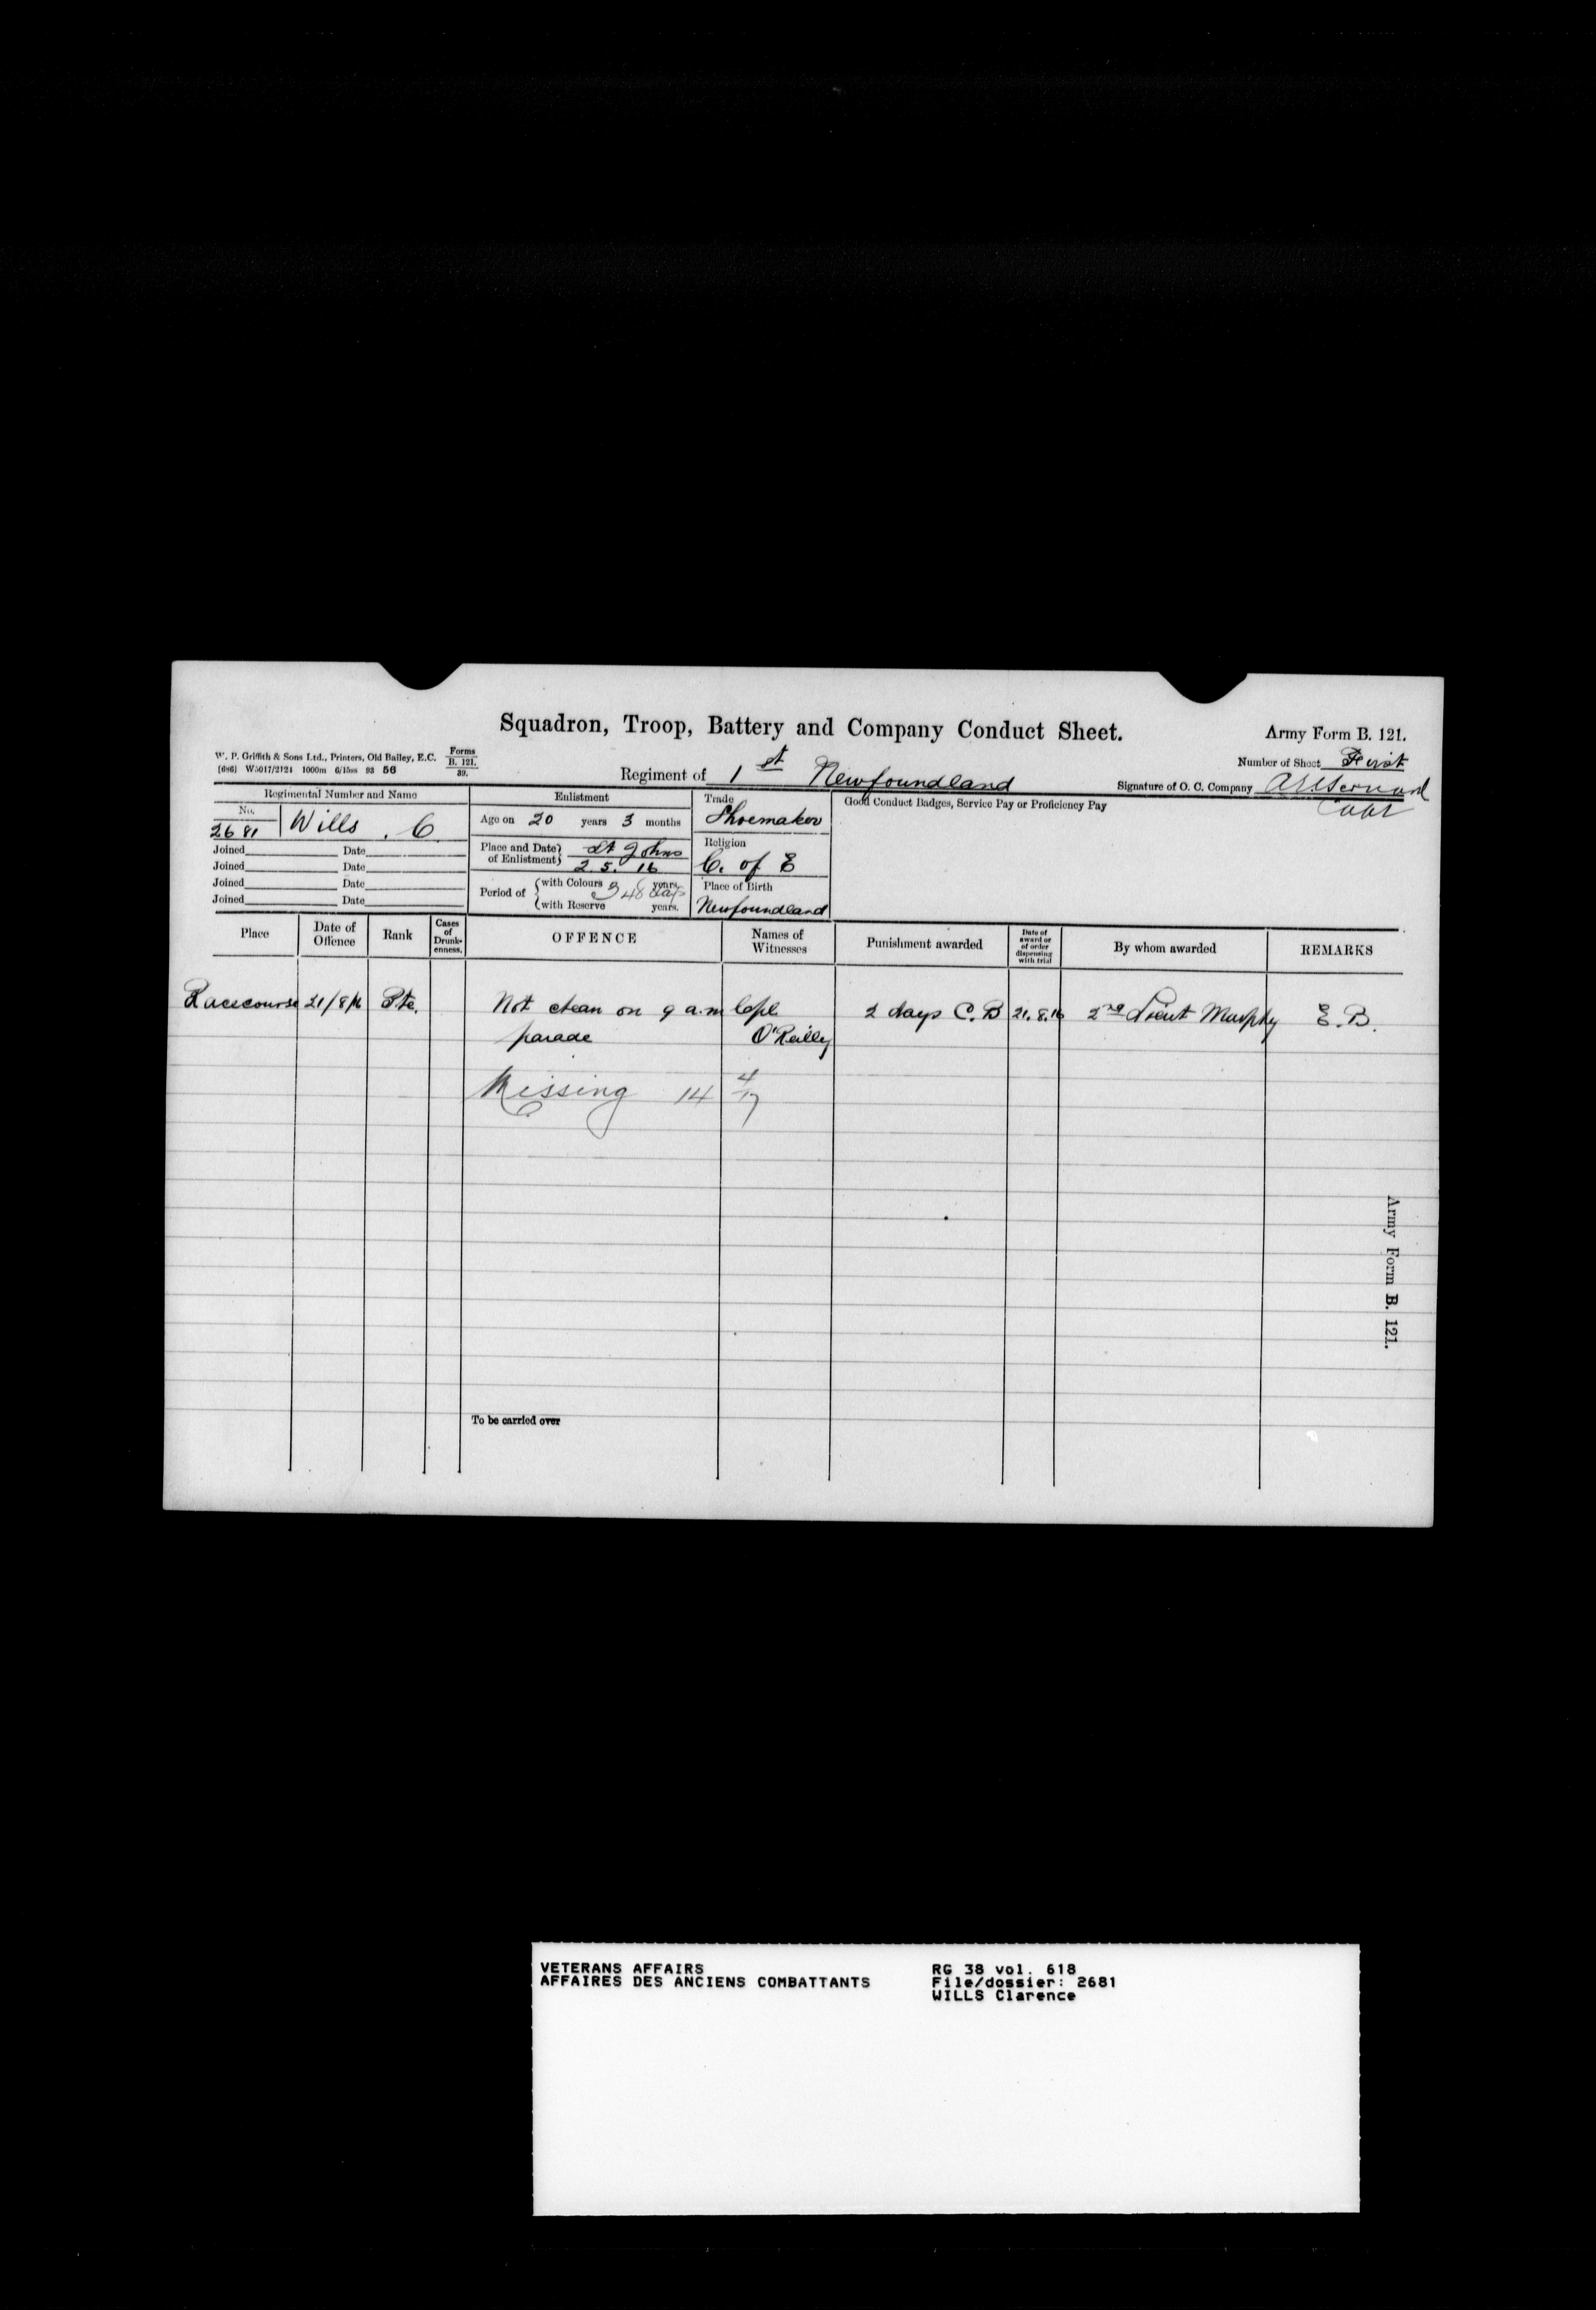 Squadron, Troop, Battery and Company Conduct Sheet.
Army Form B. 121.
W. P. Griffith & Sons Ltd., Printers, Old Bailey, E.C.
Forms B. 121. 39.
(686) W5017/2124 1000m 6/15ss 93 56
Number of Sheet First
Regiment of 1st Newfoundland
Signature of O. C. Company
Capt
Regimental Number and Name
No.
2681 Wills . C.
Joined Date
Joined Date
Joined Date
Joined Date
Enlistment
Age on 20 years 3 months
Place and Date of Enlistment St Johns
2. 5. 16
Period of with Colours 348 days years.
with Reserve years.
Trade
Shoemaker
Religion
C. of E
Place of Birth
Newfoundland
Good Conduct Badges, Service Pay or Proficiency Pay
Place Date of Offence Rank Cases of Drunk-enness. OFFENCE Names of Witnesses Punishment awarded Date of award or of order dispensing with trial By whom awarded REMARKS
Racecourse 21/8/16 Pte. Not clean on 9 a.m Cpl. 2 days C.B 21.8.16 2nd Lieut Murphy E.B.
parade O'Reilly
Missing 14 4/17
To be carried over
Army Form B. 121.
VETERANS AFFAIRS RG 38 vol. 618
AFFAIRES DES ANCIENS COMBATTANTS File/dossier: 2681
WILLS Clarence